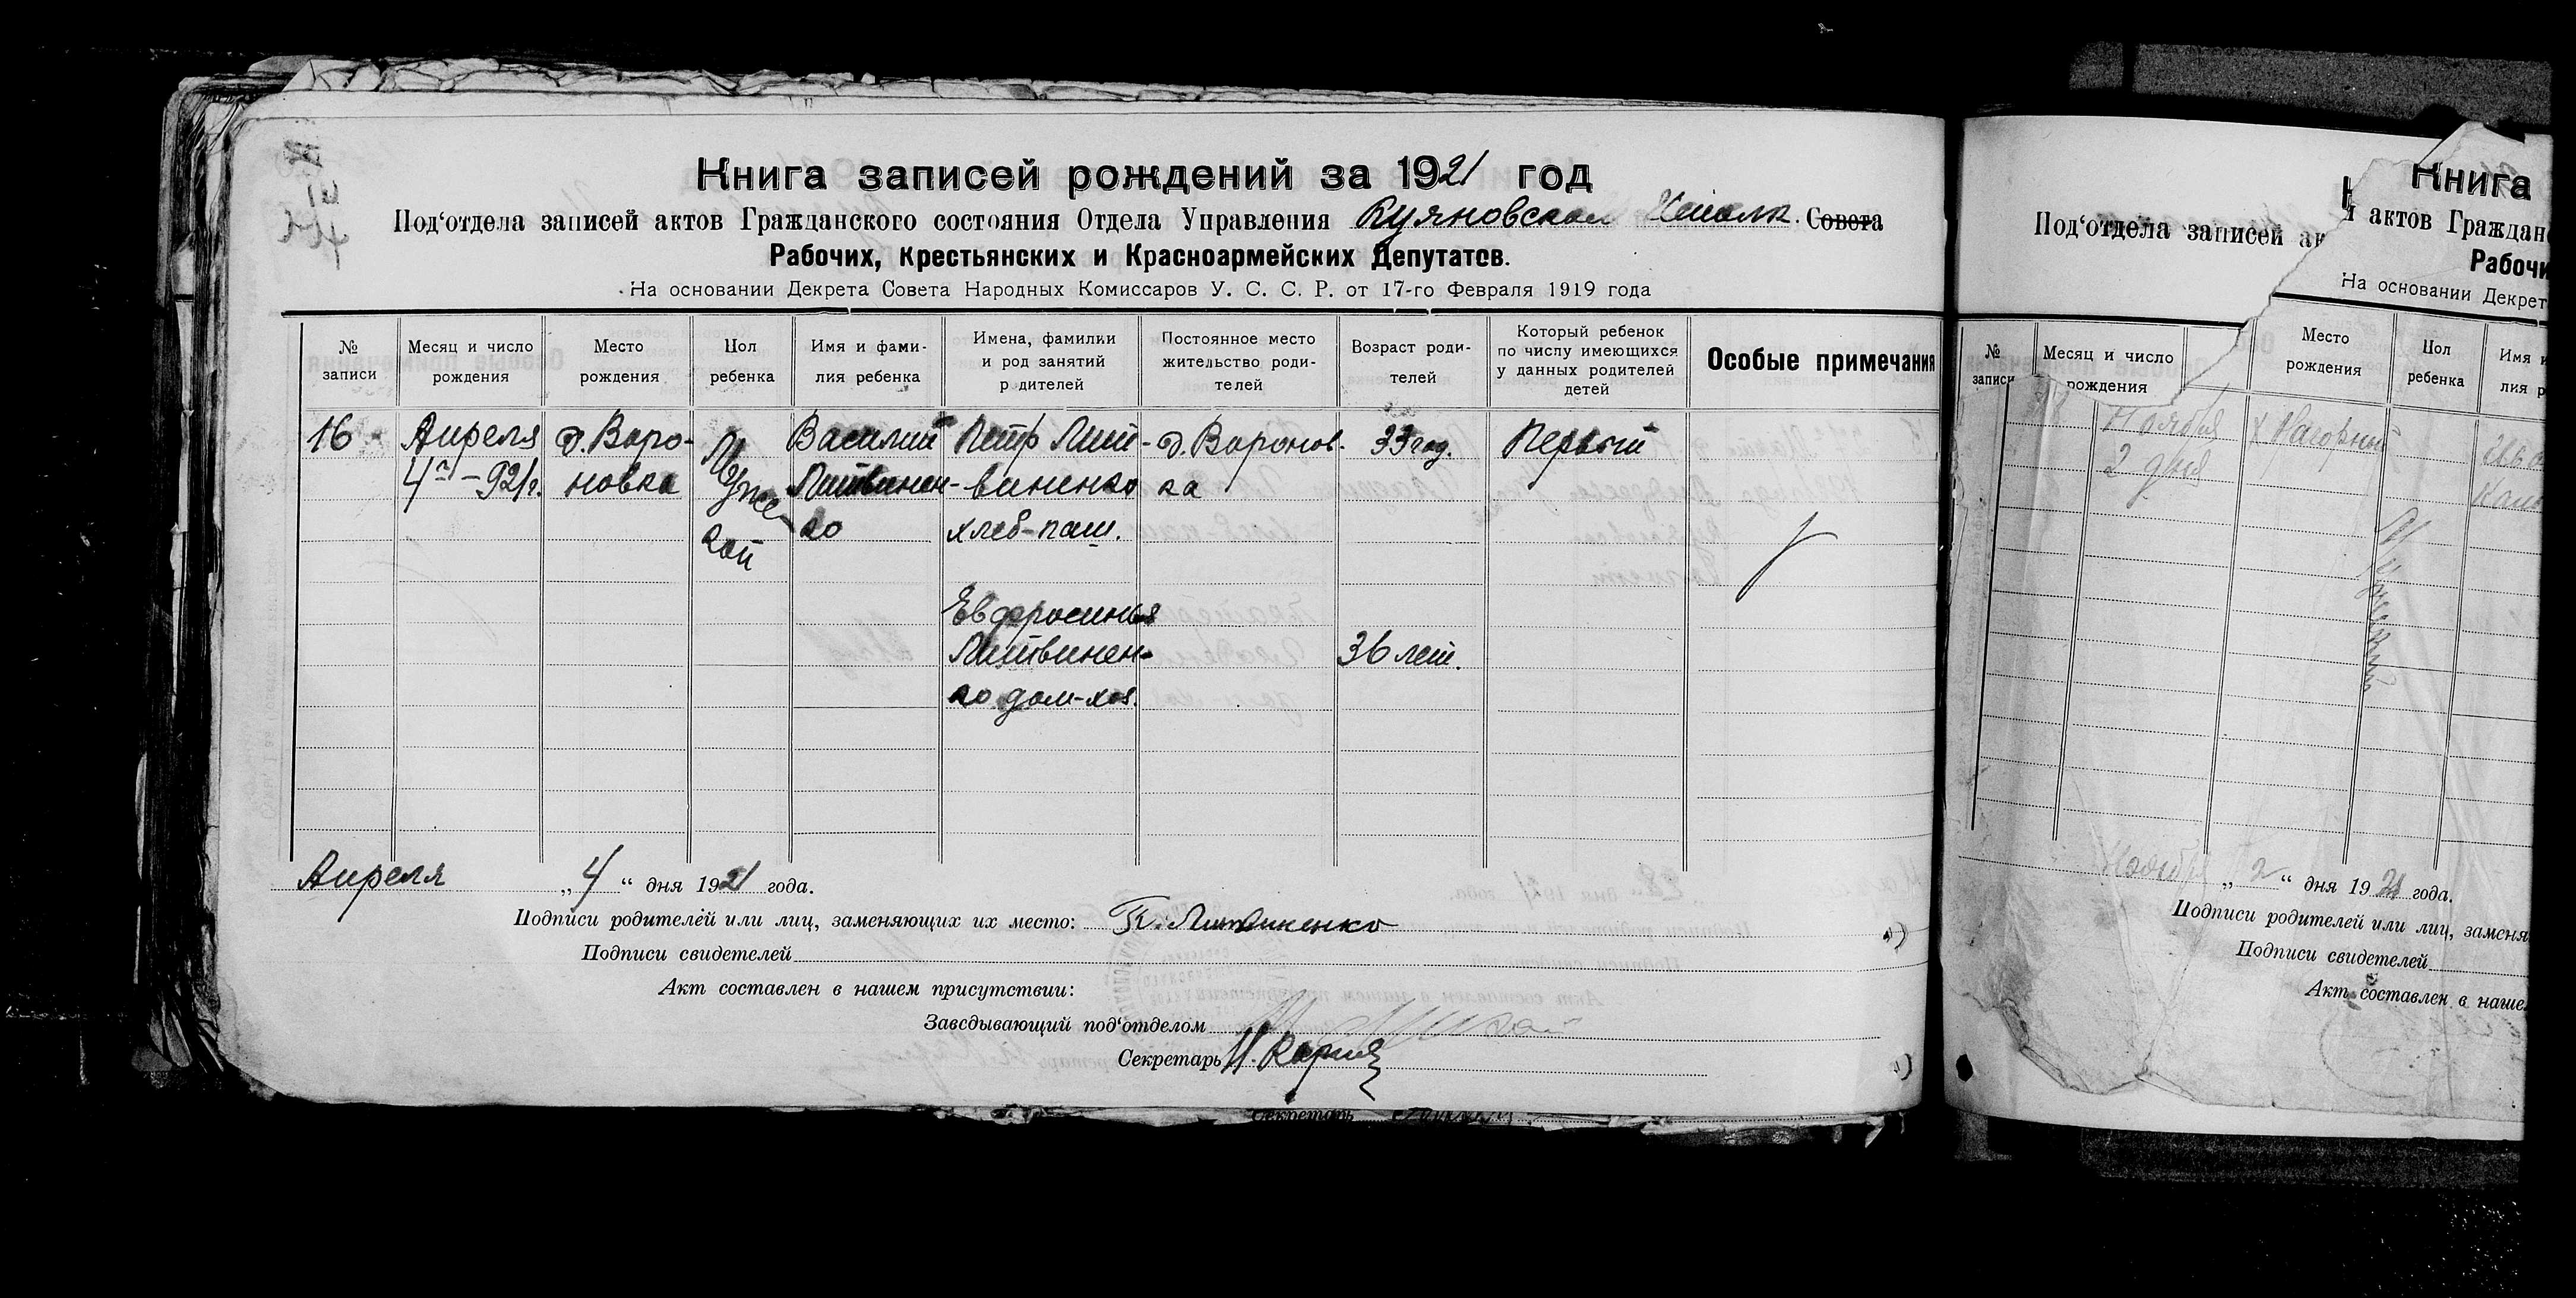 Книга записей рождений за 1921 год
Под‘отдела записей актов Гражданского состояния Отдела Управления Куяновской Совета
Рабочих, Крестьянских и Красноармейских Депутатов.
На основании Декрета Совета Народных Комиссаров У. С. С. Р. от 17-го Февраля 1919 года
№ записи
Месяц и число рождения
Место рождения
Пол ребенка
Имя и фами-
лия ребенка
Имена, фамилии
и род занятий
р дителей
Постоянное место
жительство роди-
телей
Возраст роди-
телей
Который ребенок
по числу имеющихся
у данных родителей
детей
Особые примечания
16
Апреля
4го – 921г.
д. Воро-
новка
Муже-
ской
Василий
Литвинен-
ко
Петр Лит-
виненко
хлеб-паш.
д. Воронов-
ка
33 год.
Первый
Евфросинья
Литвинен-
ко дом-хоз.
36 лет.
Апреля „4“ дня 1921 года.
Подписи родителей или лиц, заменяющих их место: П. Литвиненко
Подписи свидетелей
Акт составлен в нашем присутствии:
Заведывающий под‘отделом
Секретарь
Секретарь
Книга
Под‘отдела записей ак
актов Граждан
Рабочи
На основании Декрет
№
записи
Месяц и число
рождения
Место
рождения
Пол
ребенка
Имя и
лия р
Ноября
2 дня
х Нагорный
Мужеский
Ноября „2“ дня 1921 года.
Подписи родителей или лиц, заменя
Подписи свидетелей
Акт составлен в наше